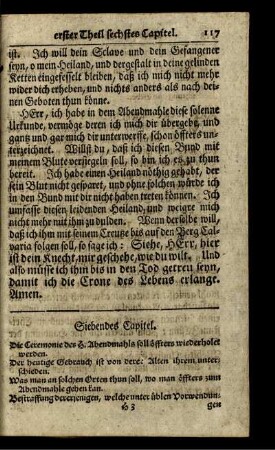 erster Theil sechstes Capitel. 117
ist. Ich will dein Sclave und dein Gefangener
seyn, o mein Heiland, und dergestalt in deine gelinden
Ketten eingefesselt bleiben, daß ich mich nicht mehr
wider dich erheben, und nichts anders als nach dei-
nen Geboten thun könne.
HErr, ich habe in dem Abendmahle diese solenne
Urkunde, vermöge deren ich mich dir übergebe, und
ganz und gar mich dir unterwerffe, schon öffters un-
terzeichnet. Willst du, daß ich diesen Bund mit
meinem Blute versiegeln soll, so bin ich es zu thun
bereit. Ich habe einen Heiland nöthig gehabt, der
sein Blut nicht gesparet, und ohne solchen würde ich
in den Bund mit dir nicht haben treten können. Ich
umfasse diesen leidenden Heiland, und weigre mich
nicht mehr mit ihm zu dulden. Wenn derselbe will,
daß ich ihm mit seinem Creutze bis auf den Berg Cal-
varia folgen soll, so sage ich: Siehe, HErr, hier
ist dein Knecht, mir geschehe, wie du wilt. Und
also müsse ich ihm bis in den Tod getreu seyn,
damit ich die Crone des Lebens erlange.
Amen.
Siebendes Capitel.
Die Ceremonie des H. Abendmahls soll öffters wiederholet
werden.
Der heutige Gebrauch ist von dere: Alten ihrem unter-
schieden.
Was man an solchen Orten thun soll, wo man öffters zum
Abendmahle gehen kan.
Bestraffung derejenigen, welche unter üblen Vorwendun-
H 3 gen